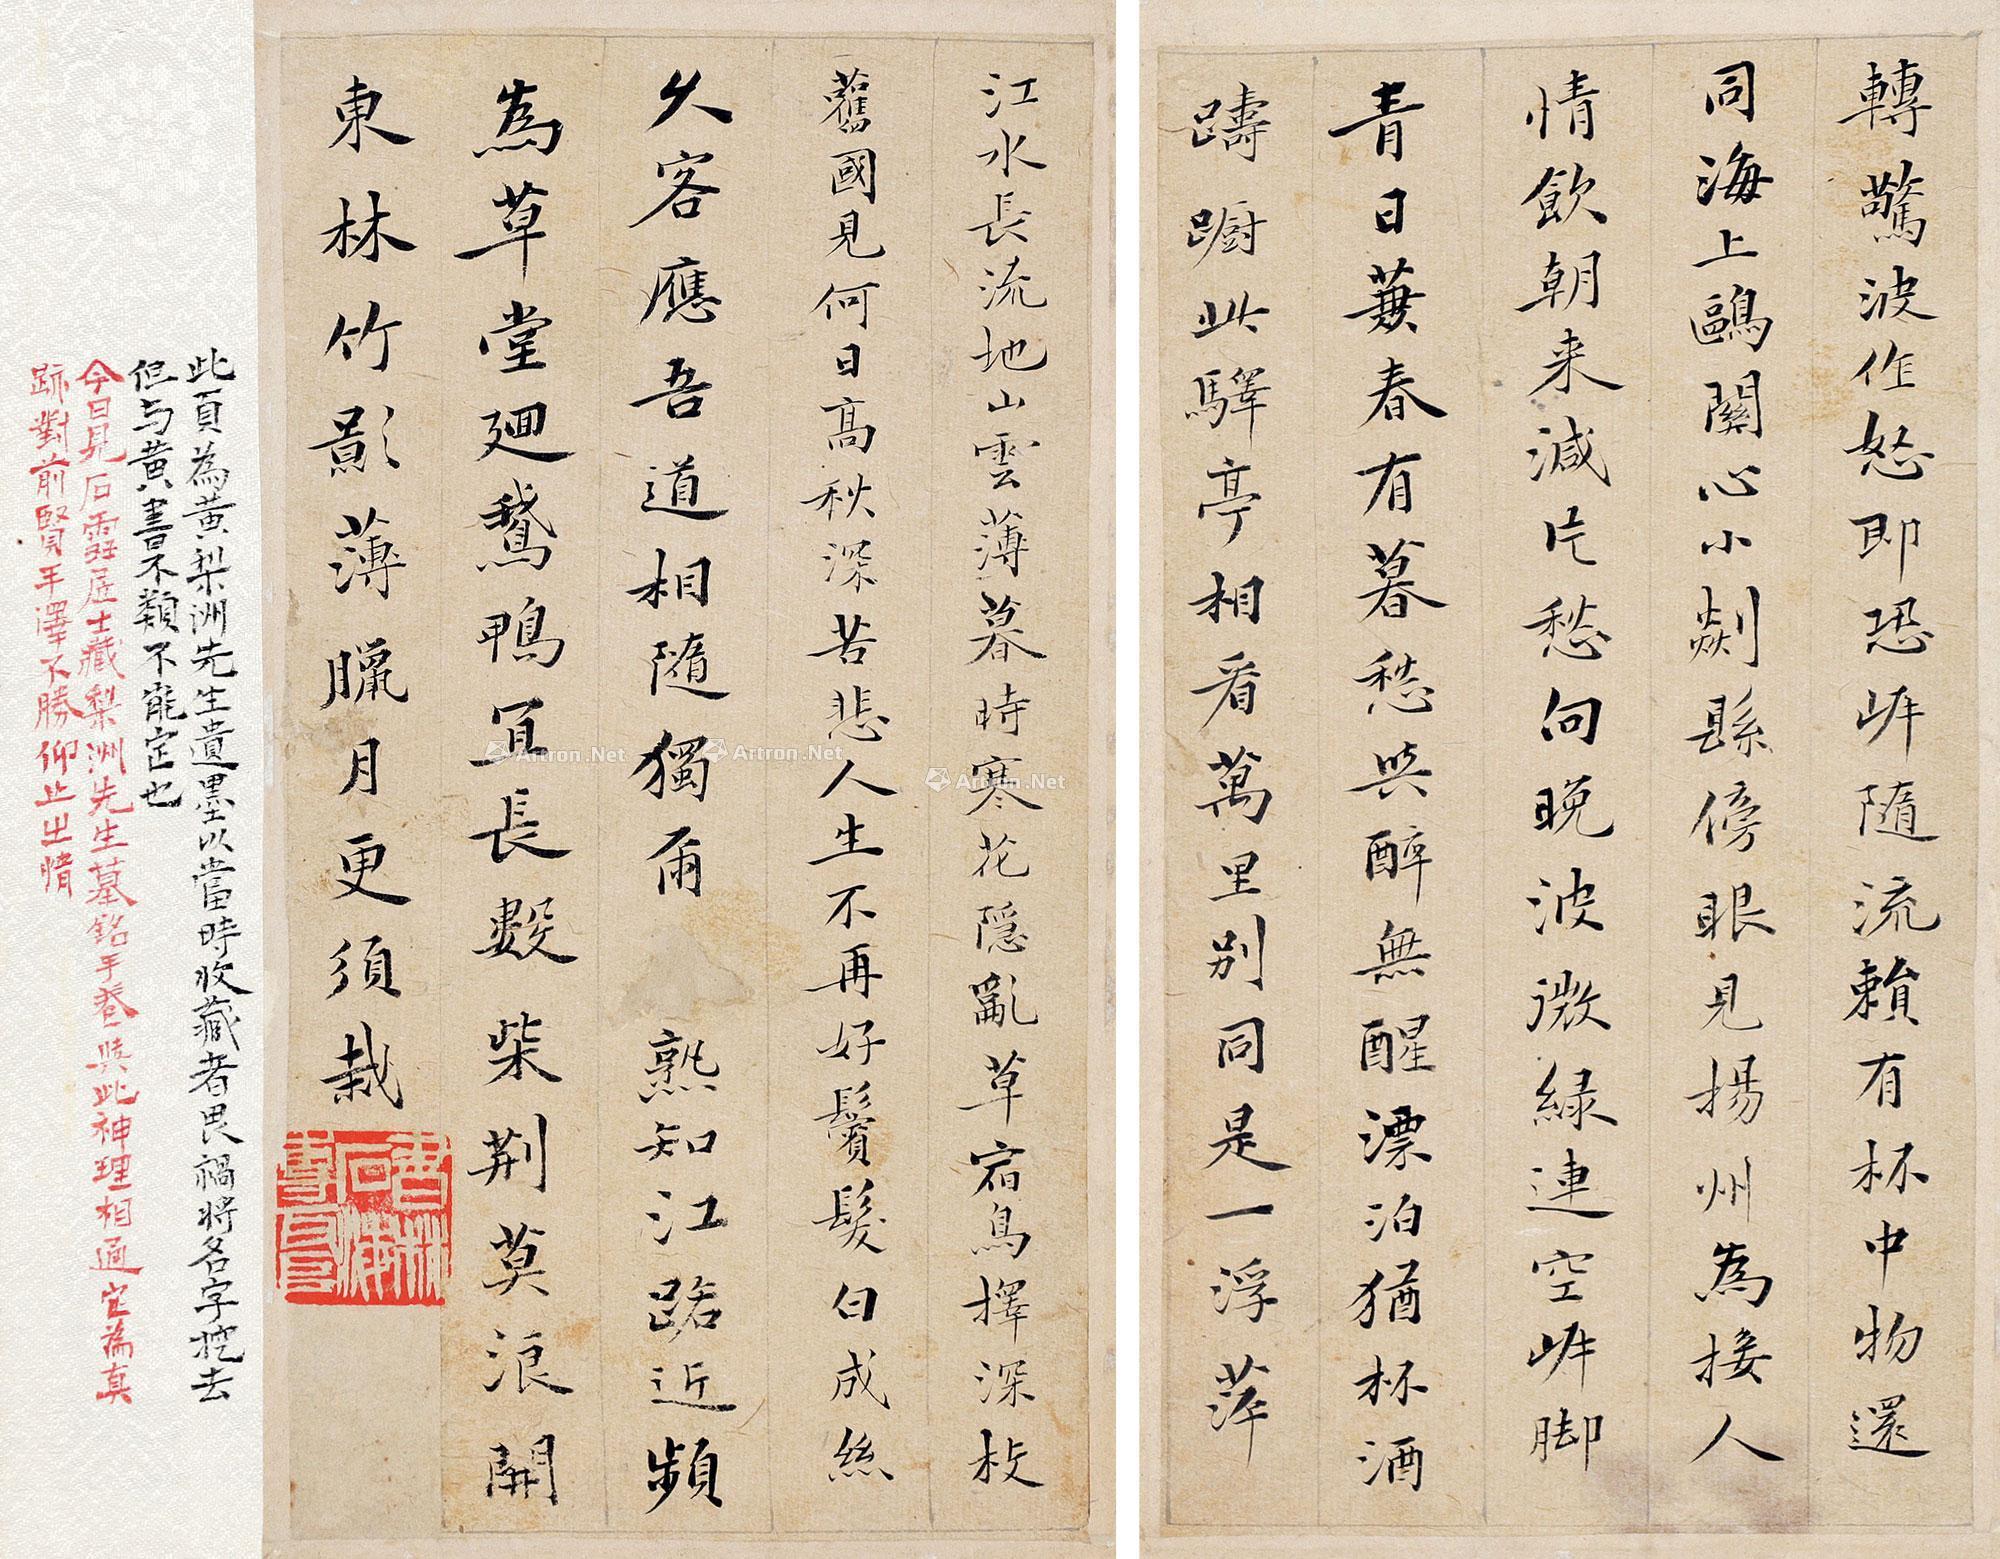 轉驚波作怒即恐岸隨流賴有杯中物還
同海上鷗關心小剡縣傍眼見揚州為接人
情飲朝来減片愁向晚波微綠連空岸脚
青日蕪春有暮愁與醉無醒漂泊猶杯酒
躊蹰此驛亭相看萬里别同是一浮萍
江水長流地山雲薄暮時寒花隱亂草宿鳥擇深枝
舊國見何日高秋深苦悲人生不再好鬢髮白成絲
久客應吾道相隨獨爾 熟知江路近頻
為草堂廻鵞鴨宜長數柴荆莫浪開
東林竹影薄臘月更須栽
此頁為黃梨洲先生遺墨以當時收藏者畏禍將名字挖去
但与黃書不類不能定也
今日見石雲居士藏梨洲先生墓銘手卷與此神理相通定為真
跡對前賢手澤不勝仰止之情
Artron.Net
Artron.Net
Artron.Net